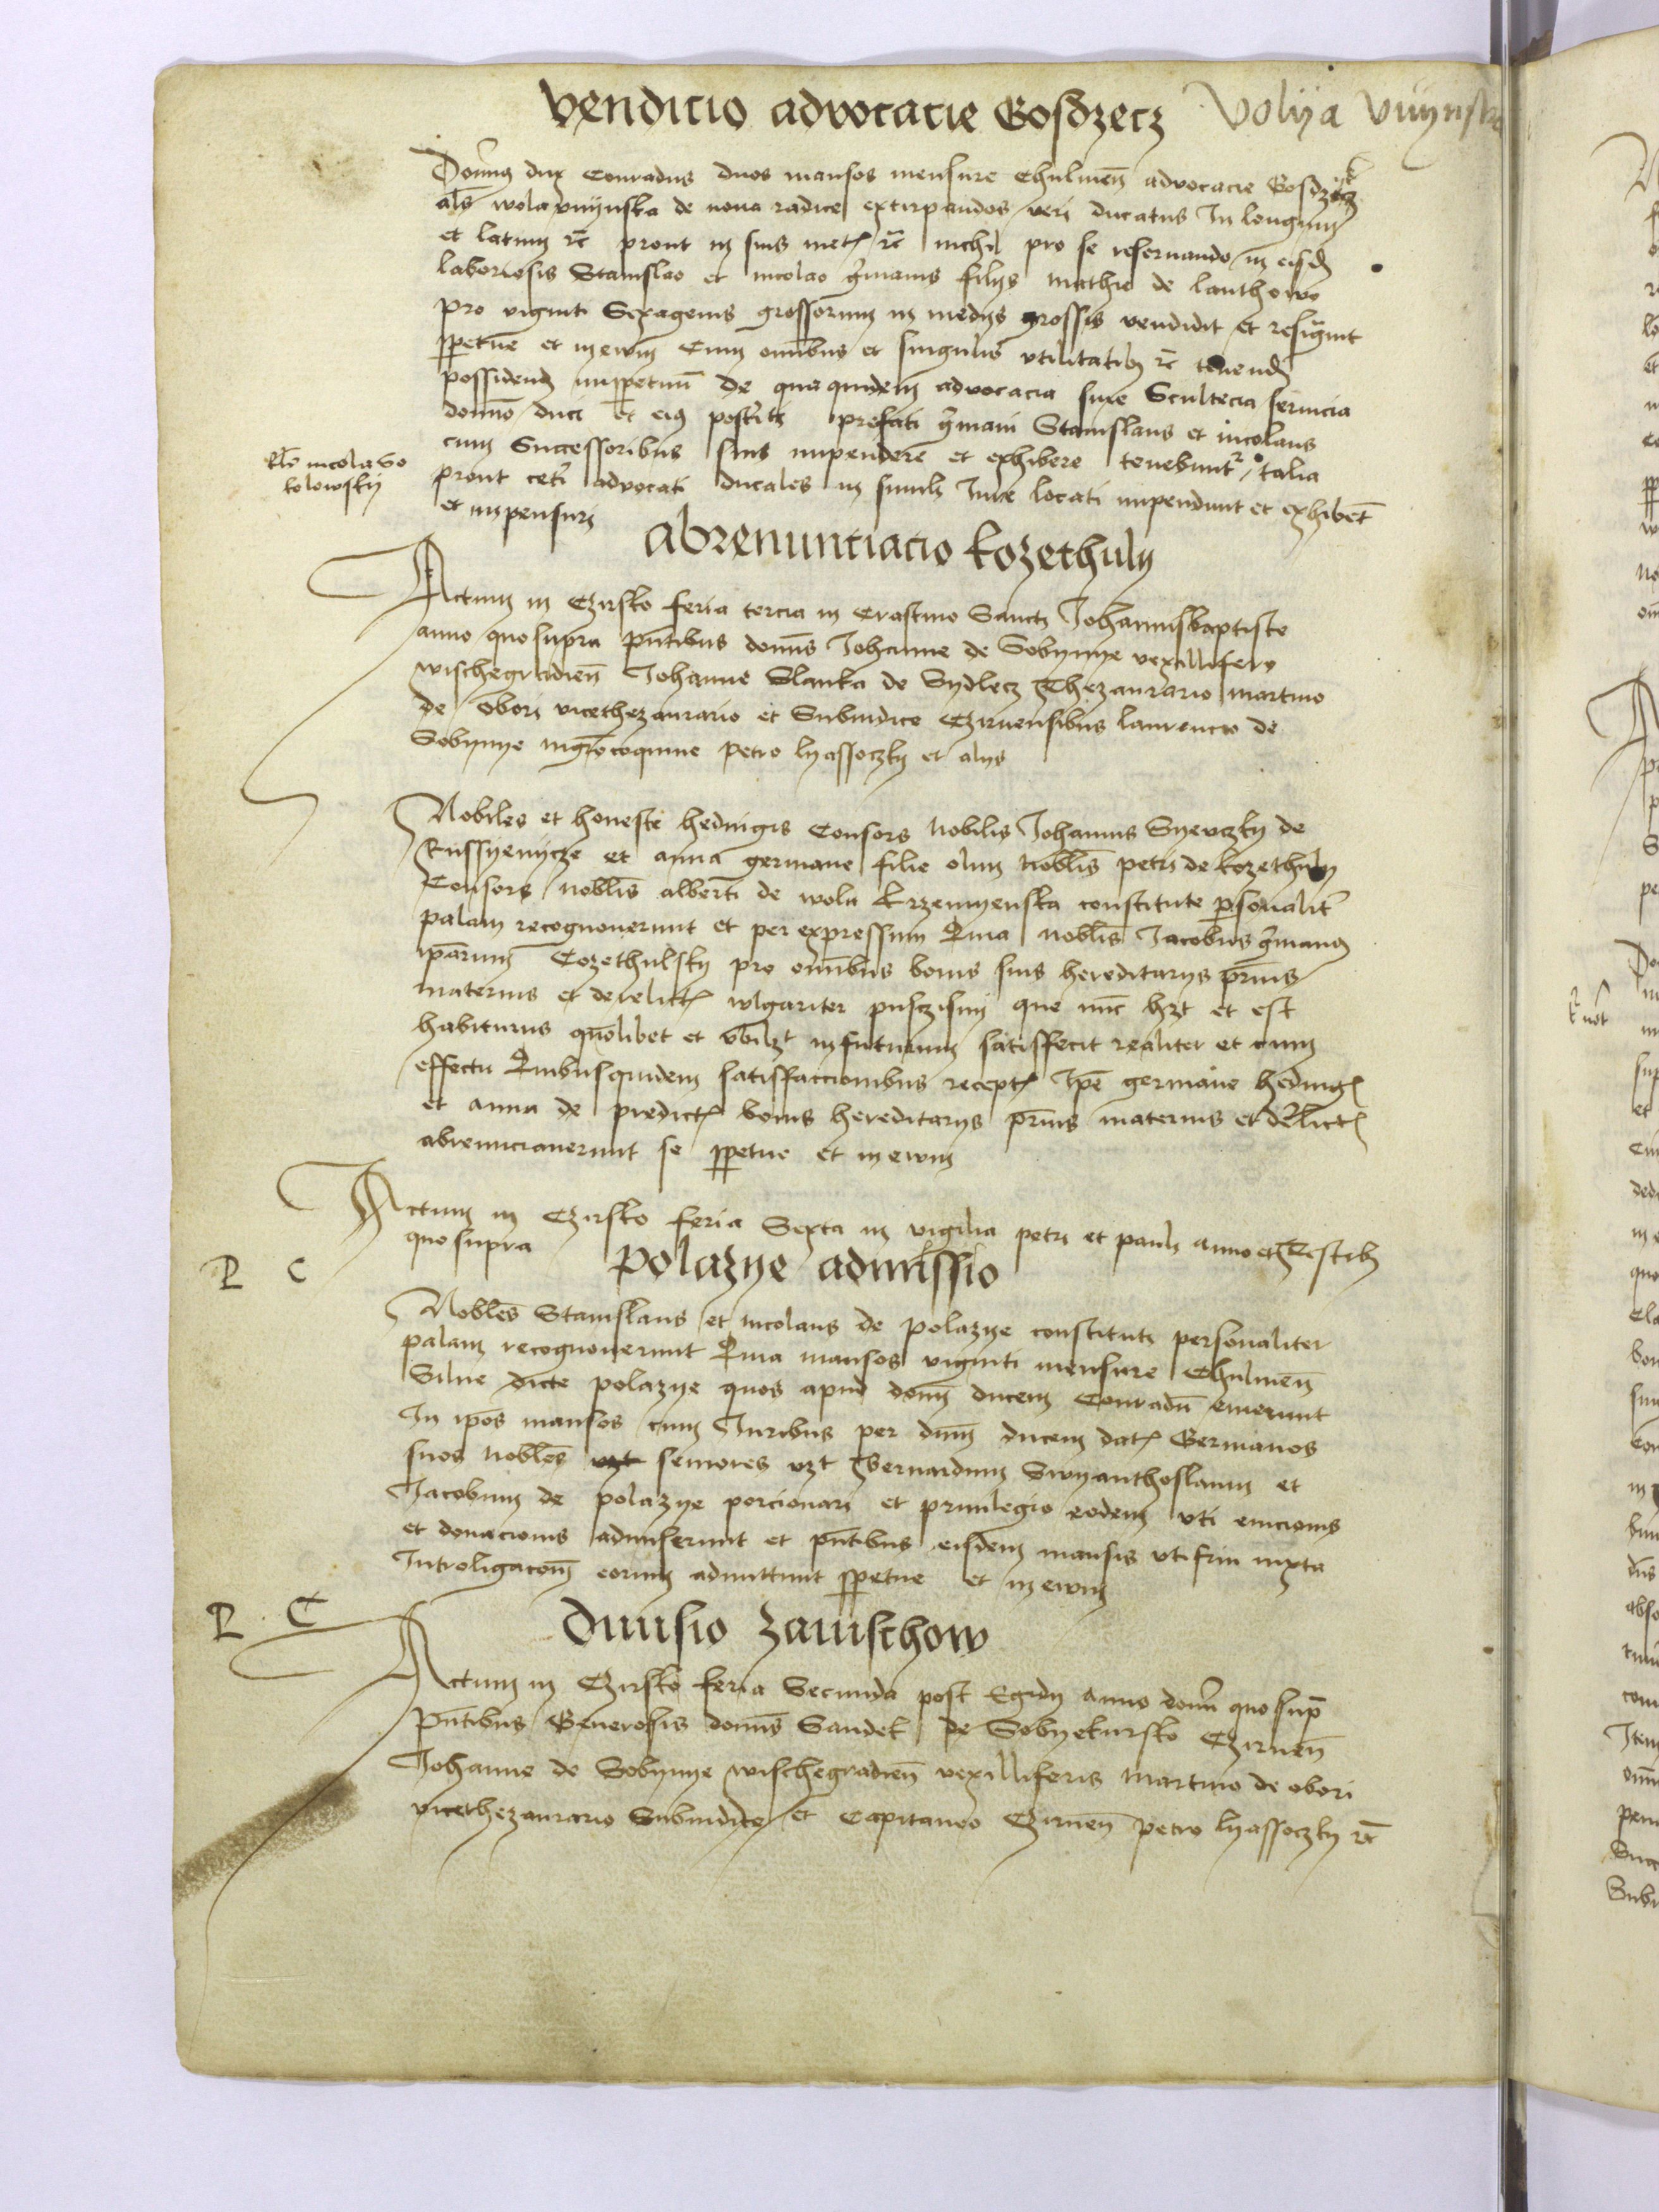 Venditio advocacie Gosdzecz Volya vuynska
Domīs dux Conradus duos mansos mensure Chulmeñ advocacie Gosdzecz
als wola vuynska de noua radice extirpandos veri ducatus In longum
et latum rc̄ prout in suis met rc̄ nichil pro se reseruando in eisd
laboriosis Stanislao et nicolao gʼmanis filijs mathie de lanthowo
pro viginti Sexagenis grossorum in medijs grossis vendidit et resignuit
ppetue et in ewm̄ Cum omībus et singulis vtilitatib rc̄ tenend
possidend imppetuū de qua quidem advocacia siue Scultecia seruicia
domīo duci et eiꝰ posteritʒ prefati gʼmani Stanislaus et nicolaus
cum Successoribus suis impendere et exhibere tenebuntʳ talia
prout ceti advocati ducales in simili Jure locati impendunt et exhibet
et impensuri
nicola
kolowsky
Abrenunciacio kozethuly
Actum in Czirsko feria tercia in Crastino Sancti Johannisbaptiste
anno quo supra pñtibus domīs Johanne de Sobynye vexillifero
wischegradieñ Johanne Slanka de Sydlecz Thezaurario martino
de obori vicethezaurario et Subiudice Czirnensibus laurencio de
Sobynye mgro coquine petro lyassoczky et alijs
Nobiles et honeste hedwigis Consors nobilis Johannis Syewczky de
Russyenycze et anna germane filie olim nobīlis petri de kozethuly
Consors nobīlis alberti de wola krzemyenska constitute psonalitʼ
palam recognouerunt et per expressum Quia nobīlis Jacobus gʼmanꝰ
ipārum Cozethulsky pro omībus bonis suis hereditarijs prñis
maternis et derelictʒ wlgariter pusczisny que nuc hʒt et est
habiturus quolibet et vbilʒt in futurum satisfecit realiter et cum
effectu Quibusquidem satisfaccionibus receptʒ Ipē germane hedwigʒ
et anna de predictʒ bonis hereditarijs prñis maternis et derelictʒ
abrenuciauerunt se ppetue et in ewm
Actum in Czirsko feria Sexta in vigilia petri et pauli anno et Testib
quo supra
P C
polazye admissio
Nobīles Stanislaus et nicolaus de polazye constituti personaliter
palam recognouerunt Quia mansos viginti mensure Chulmeñ
Silue dicte polazye quos apud dom̄ ducem Conradū emerunt
In ipōs mansos cum Juribus per dnm̄ ducem datʒ Germanos
suos nobīles vʒt seniores vʒt Bernardum Swyanthoslaum et
Jacobum de polazye porcionari et priuilegio eodem vti empcionis
et donacionis admiserunt et pñtibus eisdem mansis vtifrui iuxta
Introligacōm̄ eorum admittunt ppetue et in ewm
P C
Diuisio zauischow
Actum in Czirsko feria Secunda post Egidij anno domī quo sup̄
Pñtibus Generosis domīs Sandek de Sobyekursko Czirneñ
Johanne de Sobynye wischegradieñ vexilliferis martino de obori
vicethezaurario Subiudice et Capitaneo Czirneñ petro lyassoczky rc̄